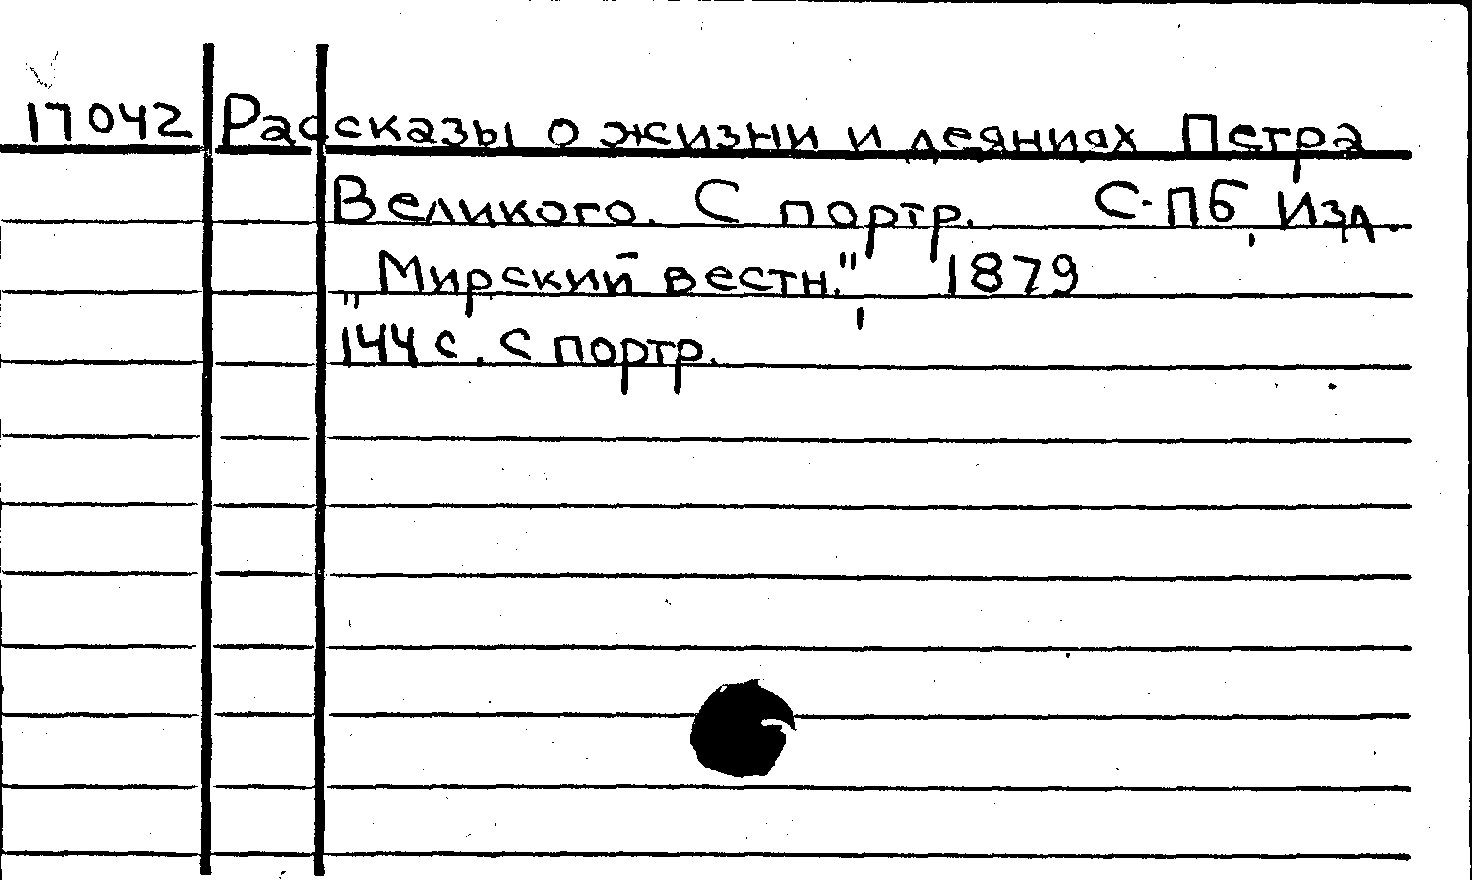 17042 Рассказы о жизни и деяниях Петра
Великого. С портр. С-Пб, Изд.
„Мирский вестн.", 1879
144 с. С портр.